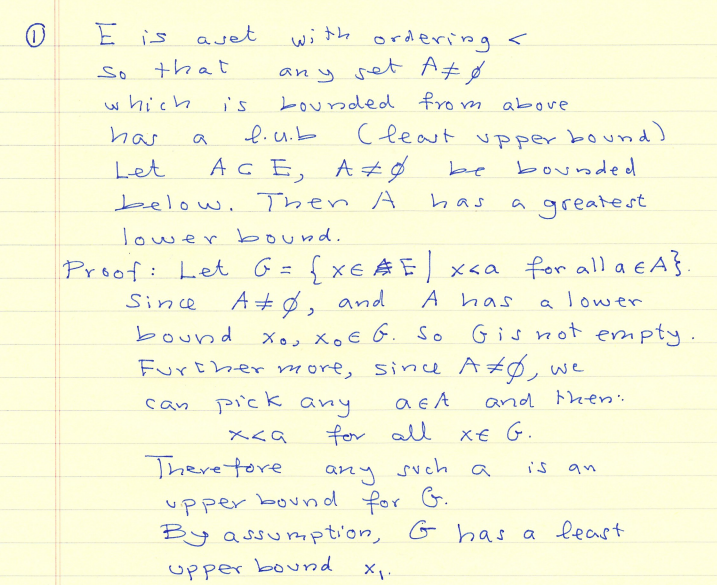 ① E is a set with ordering <
so that any set A≠∅
which is bounded from above
has a l.u.b (least upper bound)
Let A⊂E, A≠∅ be bounded
below. Then A has a greatest
lower bound.
Proof: Let G = {x∈E | x<a for all a∈A}.
Since A≠∅, and A has a lower
bound x₀, x₀∈G. So G is not empty.
Further more, since A≠∅, we
can pick any a∈A and then:
x<a for all x∈G.
Therefore any such a is an
upper bound for G.
By assumption, G has a least
upper bound x₁.